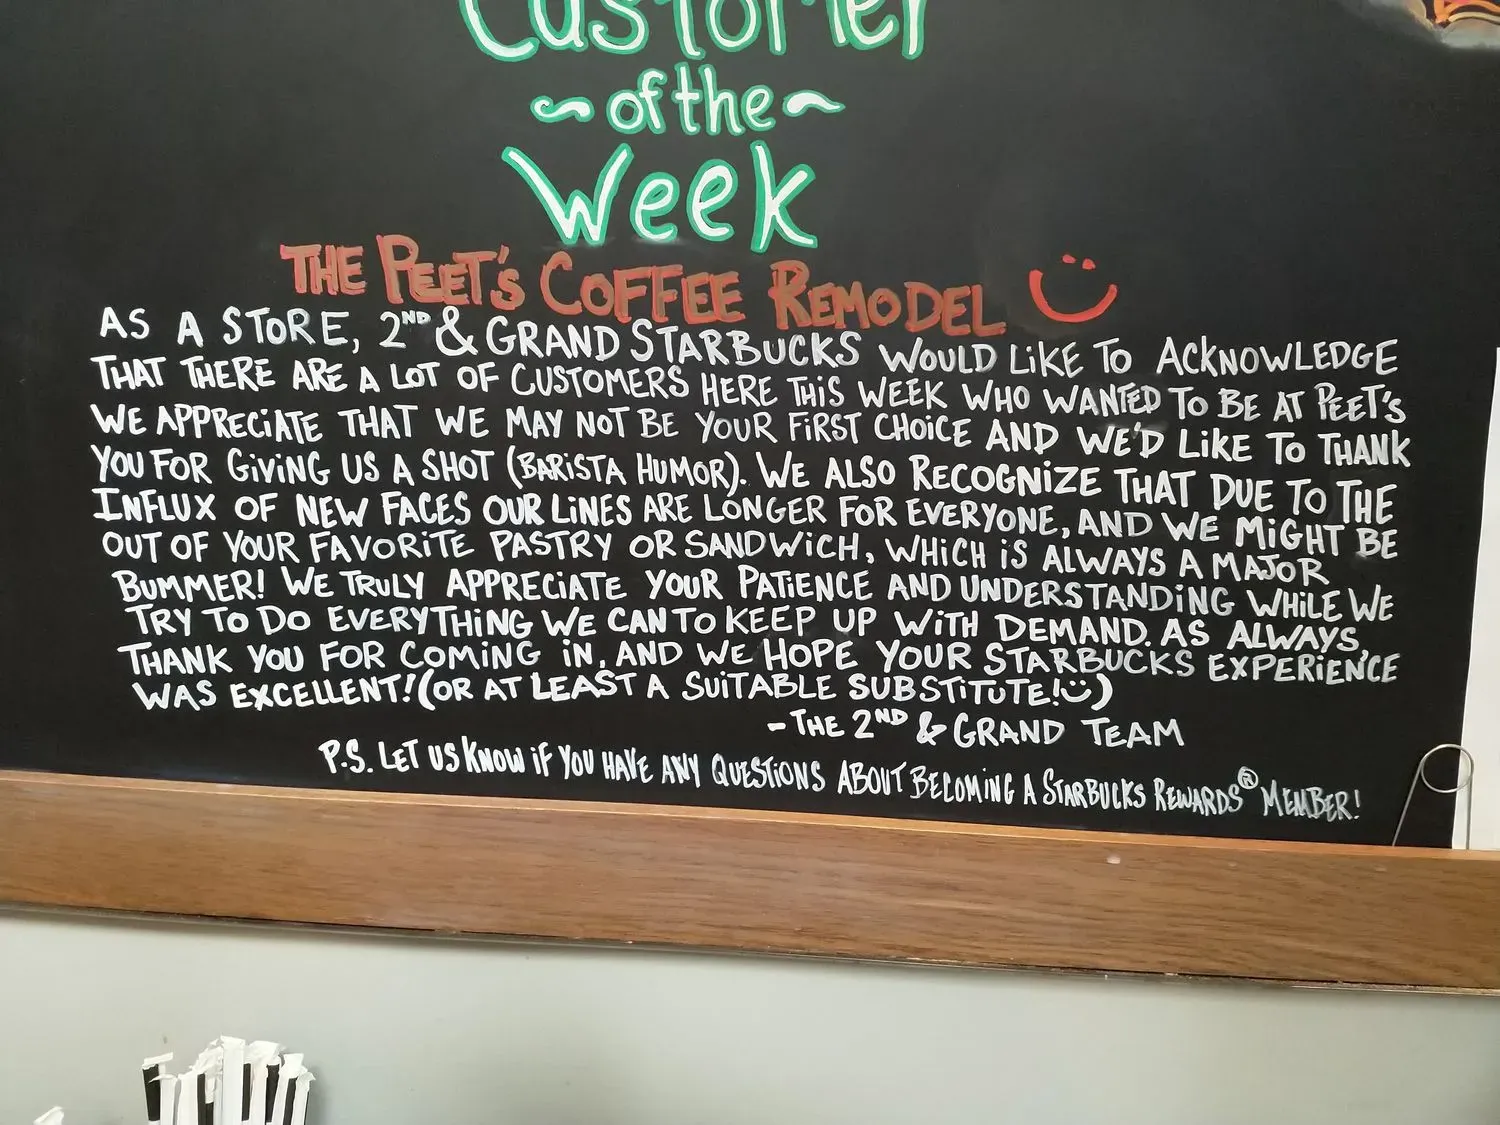 Customer
~of the~
Week
THE PEET'S COFFEE REMODEL
AS A STORE, 2ND & GRAND STARBUCKS WOULD LIKE TO ACKNOWLEDGE
THAT THERE ARE A LOT OF CUSTOMERS HERE THIS WEEK WHO WANTED TO BE AT PEET'S
WE APPRECIATE THAT WE MAY NOT BE YOUR FIRST CHOICE AND WE'D LIKE TO THANK
YOU FOR GIVING US A SHOT (BARISTA HUMOR). WE ALSO RECOGNIZE THAT DUE TO THE
INFLUX OF NEW FACES OUR LINES ARE LONGER FOR EVERYONE, AND WE MIGHT BE
OUT OF YOUR FAVORITE PASTRY OR SANDWICH, WHICH IS ALWAYS A MAJOR
BUMMER! WE TRULY APPRECIATE YOUR PATIENCE AND UNDERSTANDING WHILE WE
TRY TO DO EVERYTHING WE CAN TO KEEP UP WITH DEMAND. AS ALWAYS,
THANK YOU FOR COMING IN, AND WE HOPE YOUR STARBUCKS EXPERIENCE
WAS EXCELLENT! (OR AT LEAST A SUITABLE SUBSTITUTE! ü)
- THE 2ND & GRAND TEAM
P.S. LET US KNOW IF YOU HAVE ANY QUESTIONS ABOUT BECOMING A STARBUCKS REWARDS® MEMBER!